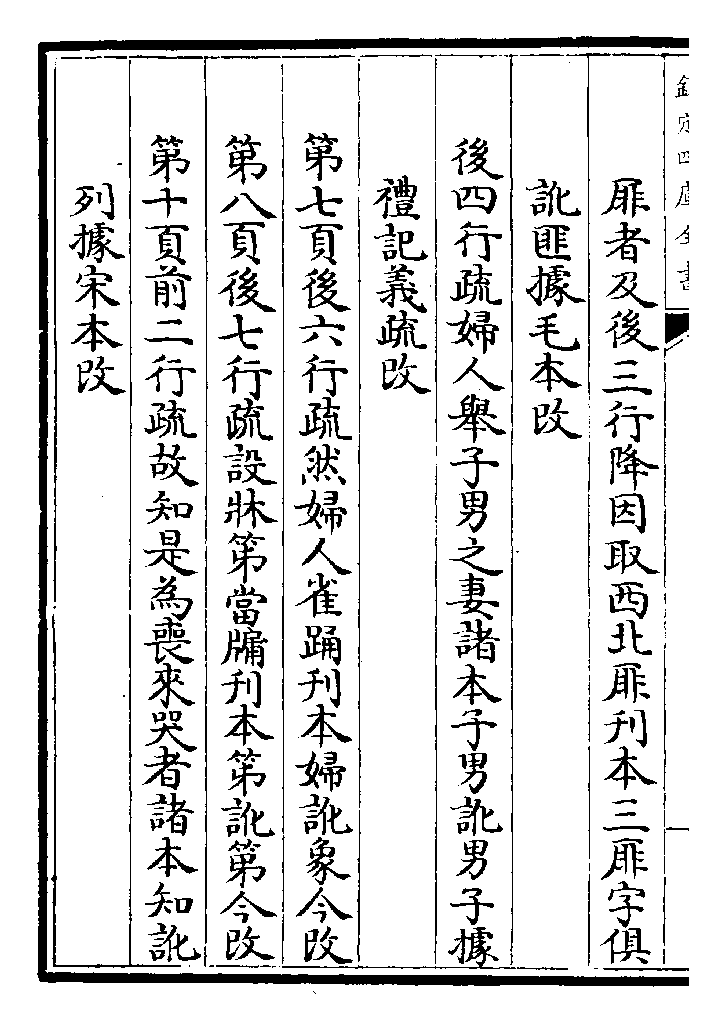 欽定四庫全書
厞者及後三行降因取西北厞刊本三厞字俱
訛匪據毛本改
後四行疏婦人舉子男之妻諸本子男訛男子據
禮記義疏改
第七頁後六行疏然婦人雀踊刊本婦訛象今改
第八頁後七行疏設牀笫當牖刊本笫訛第今改
第十頁前二行疏故知是為喪來哭者諸本知訛
列據宋本改